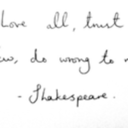 Love all, trust
do wrong to
- Shakespeare.